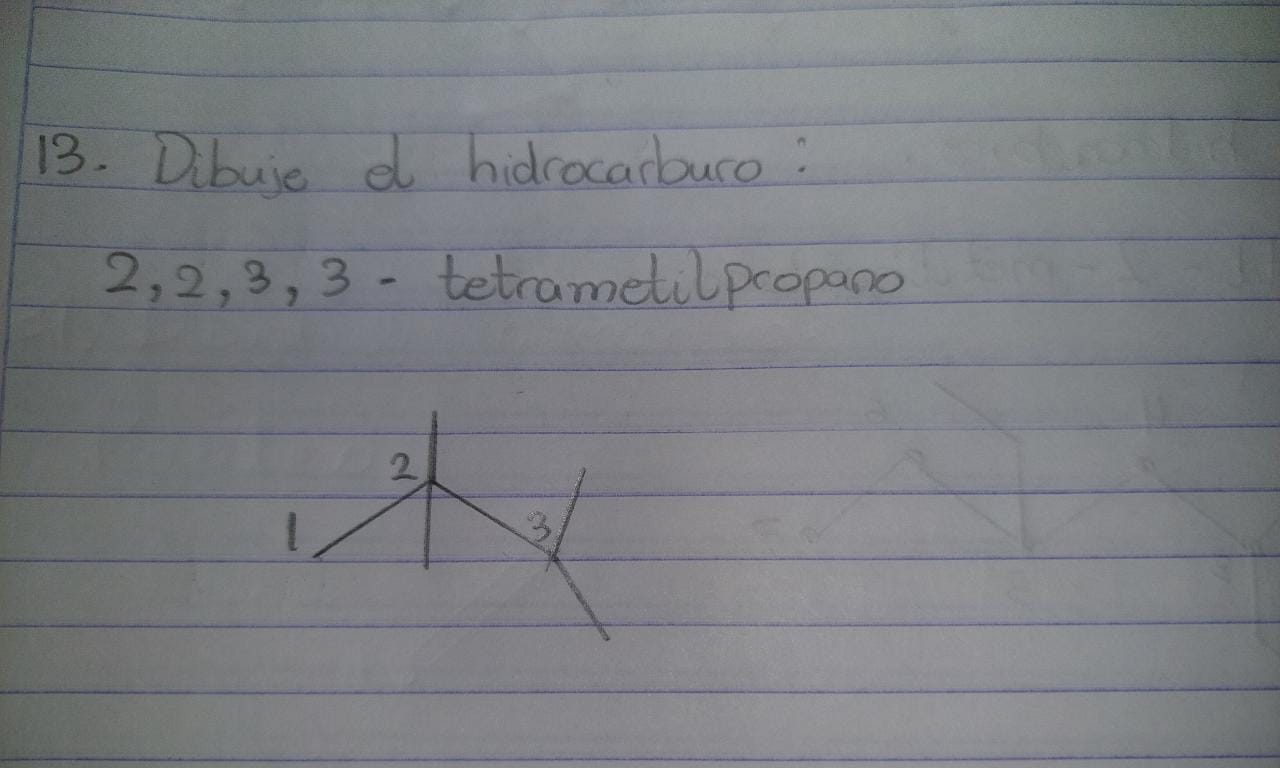 13. Dibuje el hidrocarburo:
2,2,3,3 - tetrametilpropano
2
1
3